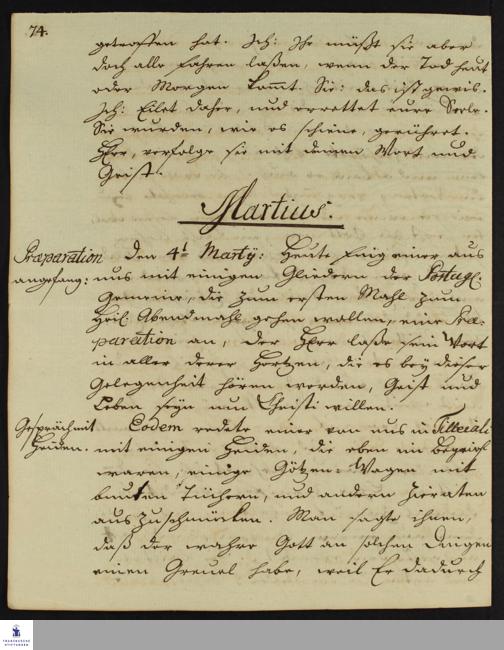 74.
getroffen hat. Ich: Ihr müßt sie aber
doch alle fahren laßen, wenn der Tod heut
oder Morgen kommt. Sie: das ist gewis.
Ich: Eilet daher, und errettet eure Seele.
Sie wurden, wie es schiene, gerühret.
HErr, verfolge sie mit deinem Wort und
Geist.
Martius.
Præparation
angefang:
Den 4t Martÿ: Heute fing einer aus
uns mit einigen Gliedern der Portugs:
Gemeine, die zum ersten Mahl zum
Heil. Abendmahl gehen wollen, eine Præ-
paration an, der HErr laße sein Wort
in aller derer Hertzen, die es bey dieser
Gelegenheit hören werden, Geist und
Leben seyn um Christi willen.
Gespräch mit
Heiden.
Eodem redete einer von uns in Tilleiali
mit einigen Heiden, die eben im Begriff
waren, einige Götzen-Wagen mit
bunten Tüchern, und andern Zieraten
auszuschmücken. Man sagte ihnen,
daß der wahre Gott an solchen Dingen
einen Greuel habe, weil Er dadurch
FRANCKESCHE
STIFTUNGEN